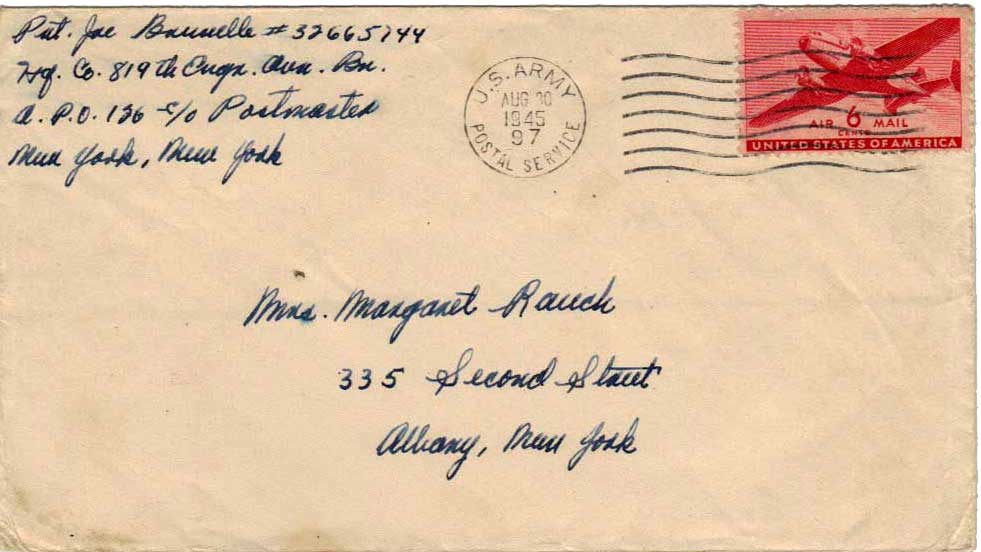 Pvt. Joe Brunelle # 32665744
Hq. Co. 819th Engr. Avn. Bn.
A.P.O. 126 c/o Postmaster
New York, New York
U.S. ARMY
AUG 30
1945
97
POSTAL SERVICE
AIR 6 MAIL
CENTS
UNITED STATES OF AMERICA
Mrs. Margaret Rauch
335 Second Street
Albany, New York